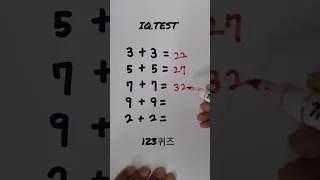 IQ.TEST
3 + 3 = 22
5 + 5 = 27
7 + 7 = 32
9 + 9 =
2 + 2 =
123퀴즈